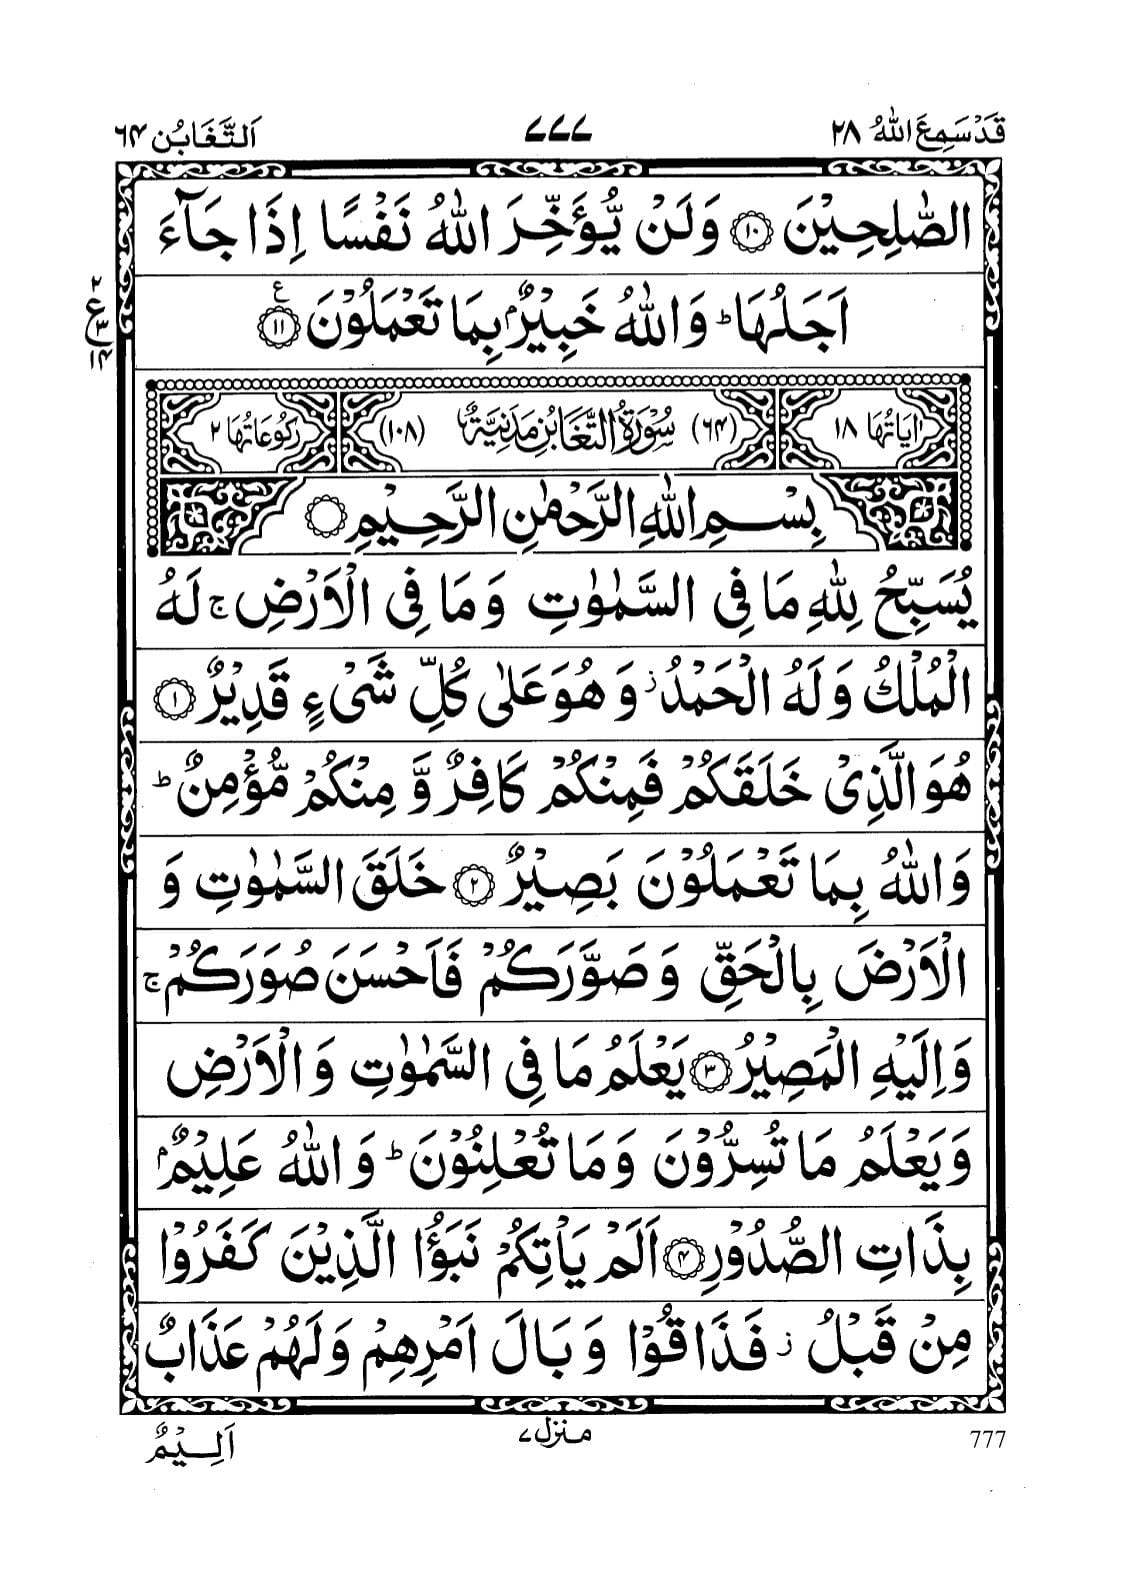 قَدْ سَمِعَ اللّٰهُ ۲۸ ۷۷۷ اَلتَّغَابُن ۶۴
الصّٰلِحِيْنَ ۝۱۰ وَلَنْ يُّؤَخِّرَ اللّٰهُ نَفْسًا اِذَا جَآءَ
اَجَلُهَا ؕ وَاللّٰهُ خَبِيْرٌۢ بِمَا تَعْمَلُوْنَ ۝۱۱ ع
۲
ع ۳
۱۴
اٰيَاتُهَا ۱۸ (۶۴) سُوْرَةُ التَّغَابُنِ مَدَنِيَّةٌ (۱۰۸) رُكُوْعَاتُهَا ۲
بِسْمِ اللّٰهِ الرَّحْمٰنِ الرَّحِيْمِ ۝
يُسَبِّحُ لِلّٰهِ مَا فِى السَّمٰوٰتِ وَمَا فِى الْاَرْضِ ۚ لَهُ
الْمُلْكُ وَلَهُ الْحَمْدُ ز وَهُوَ عَلٰى كُلِّ شَىْءٍ قَدِيْرٌ ۝۱
هُوَ الَّذِىْ خَلَقَكُمْ فَمِنْكُمْ كَافِرٌ وَّ مِنْكُمْ مُّؤْمِنٌ ؕ
وَاللّٰهُ بِمَا تَعْمَلُوْنَ بَصِيْرٌ ۝۲ خَلَقَ السَّمٰوٰتِ وَ
الْاَرْضَ بِالْحَقِّ وَصَوَّرَكُمْ فَاَحْسَنَ صُوَرَكُمْ ۚ
وَاِلَيْهِ الْمَصِيْرُ ۝۳ يَعْلَمُ مَا فِى السَّمٰوٰتِ وَالْاَرْضِ
وَيَعْلَمُ مَا تُسِرُّوْنَ وَمَا تُعْلِنُوْنَ ؕ وَاللّٰهُ عَلِيْمٌۢ
بِذَاتِ الصُّدُوْرِ ۝۴ اَلَمْ يَاْتِكُمْ نَبَؤُا الَّذِيْنَ كَفَرُوْا
مِنْ قَبْلُ ز فَذَاقُوْا وَبَالَ اَمْرِهِمْ وَلَهُمْ عَذَابٌ
777 منزل ۷ اَلِيْمٌ